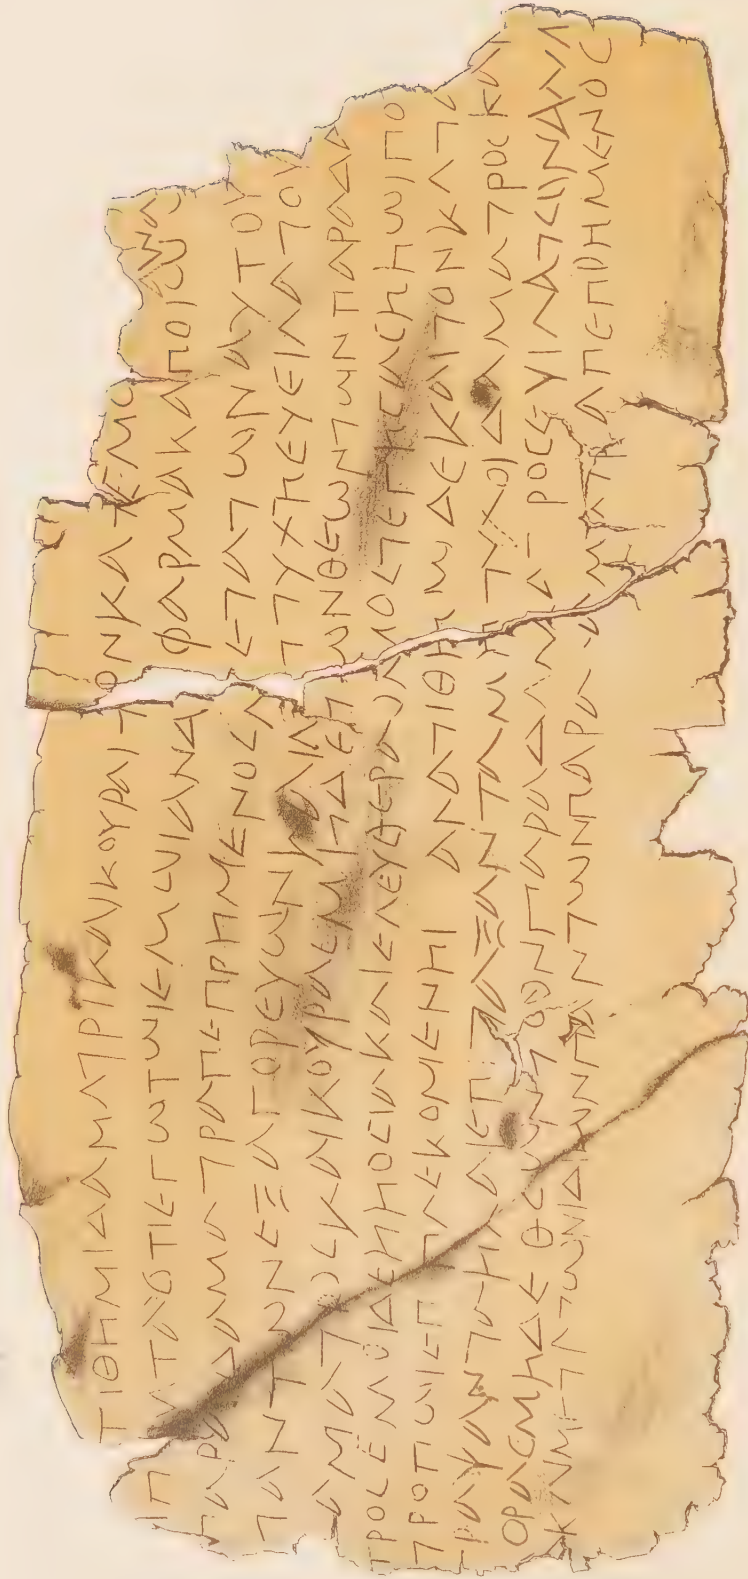 ΤΙΘΗΜΙΔΑΜΑΤΡΙΚΑΙΚΟΥΡΑΙΤΟΝΚΑΤΕΜΟ
ΙΠ ΝΤΑΟΤΙΕΓΩΤΩΙΕΜΩΙΑΝΔ ΦΑΡΜΑΚΑΠΟΙΩΑΝΑ
ΠΑΡΑΔΑΜΑΤΡΑΠΕΠΡΗΜΕΝΟΣΜΕΤΑΤΩΝΑΥΤΟΥ
ΠΑΝΤΩΝΕΞΑΓΟΡΕΥΩΝΚΑΙΜ ΤΥΧΗΕΥΕΙΛΑΤΟΥ
ΔΑΜΑΤΡΟΣΚΑΙΚΟΥΡΑΣΜΗΔΕΤΩΝΘΕΩΝΤΩΝΠΑΡΑΔΑ
ΤΡΟΣΕΜΟΙΔΕΗΗΟΣΙΑΚΑΙΕΛΕΥΘΕΡΑΟΜΟΣΤΕΓΗΣΑΣΗΗΩΙΠΟ
ΤΡΟΠΩΙΕΠΙΠΛΕΚΟΜΕΝΗΙ ΑΝΑΤΙΘΗΜΙΔΕΚΑΙΤΟΝΚΑΤΕ
ΓΡΑΨΑΝΤΑΗΚΑΙΕΠΙΤΑΞΑΝΤΑΜΗΤΥΧΟΙΔΑΜΑΤΡΟΣΚΑΙ
ΟΡΑΣΜΗΔΕΘΕΩΝΤΩΝΠΑΡΑΔΑΜΑΤΡΟΣΕΥΙΛΑΤΩΝΑΛΛ
ΚΑΝΜΕΤΑΤΩΝΙΔΙΩΝΠΑΝΤΩΝΠΑΡΑΔΑΜΑΤΡΑΠΕΠΡΗΜΕΝΟΣ